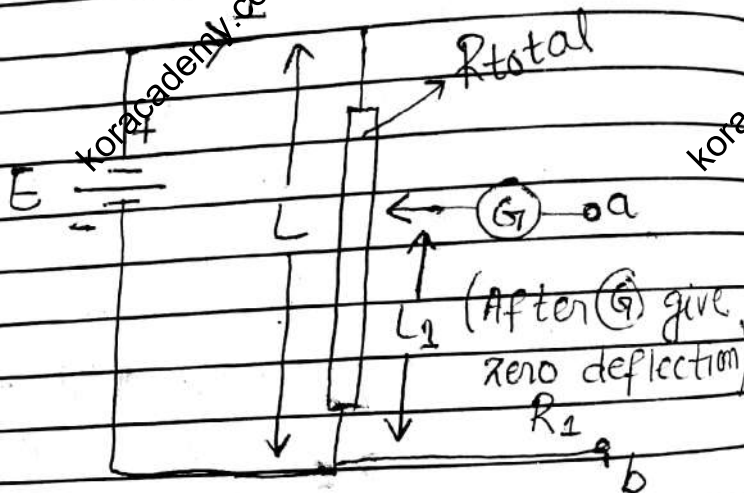 koracademy.co
Rtotal
+
kora
E
-
L
G
a
L1
(After G give
zero deflection)
R1
b